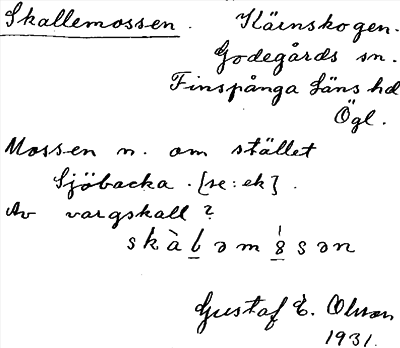 Skallemossen. Kärnskogen.
Godegårds sn.
Finspånga läns hd
Ögl.
Mossen n. om stället
Sjöbacka. [se: ek].
Av vargskall?
skàlǝmo̱sǝn
Gustaf E. Olsson
1931.